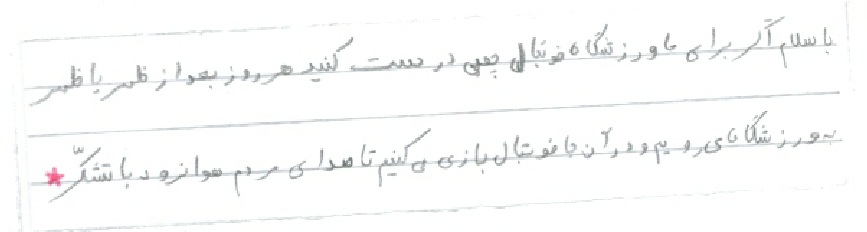 با سلام آگر برای ما ورزشگاه فوتبال چمی درست کنید هر روز بعد از ظهر با ظهر
به ورزشگاه می رویم و در آن جا فوتبال بازی می کنیم تا صدای مردم هوا نرود با تشکّر